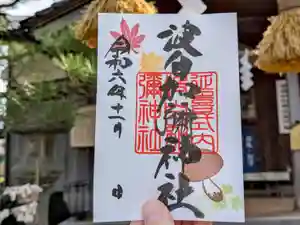 延喜式内
波自加彌神社
彌神社
令和六年十一月 日